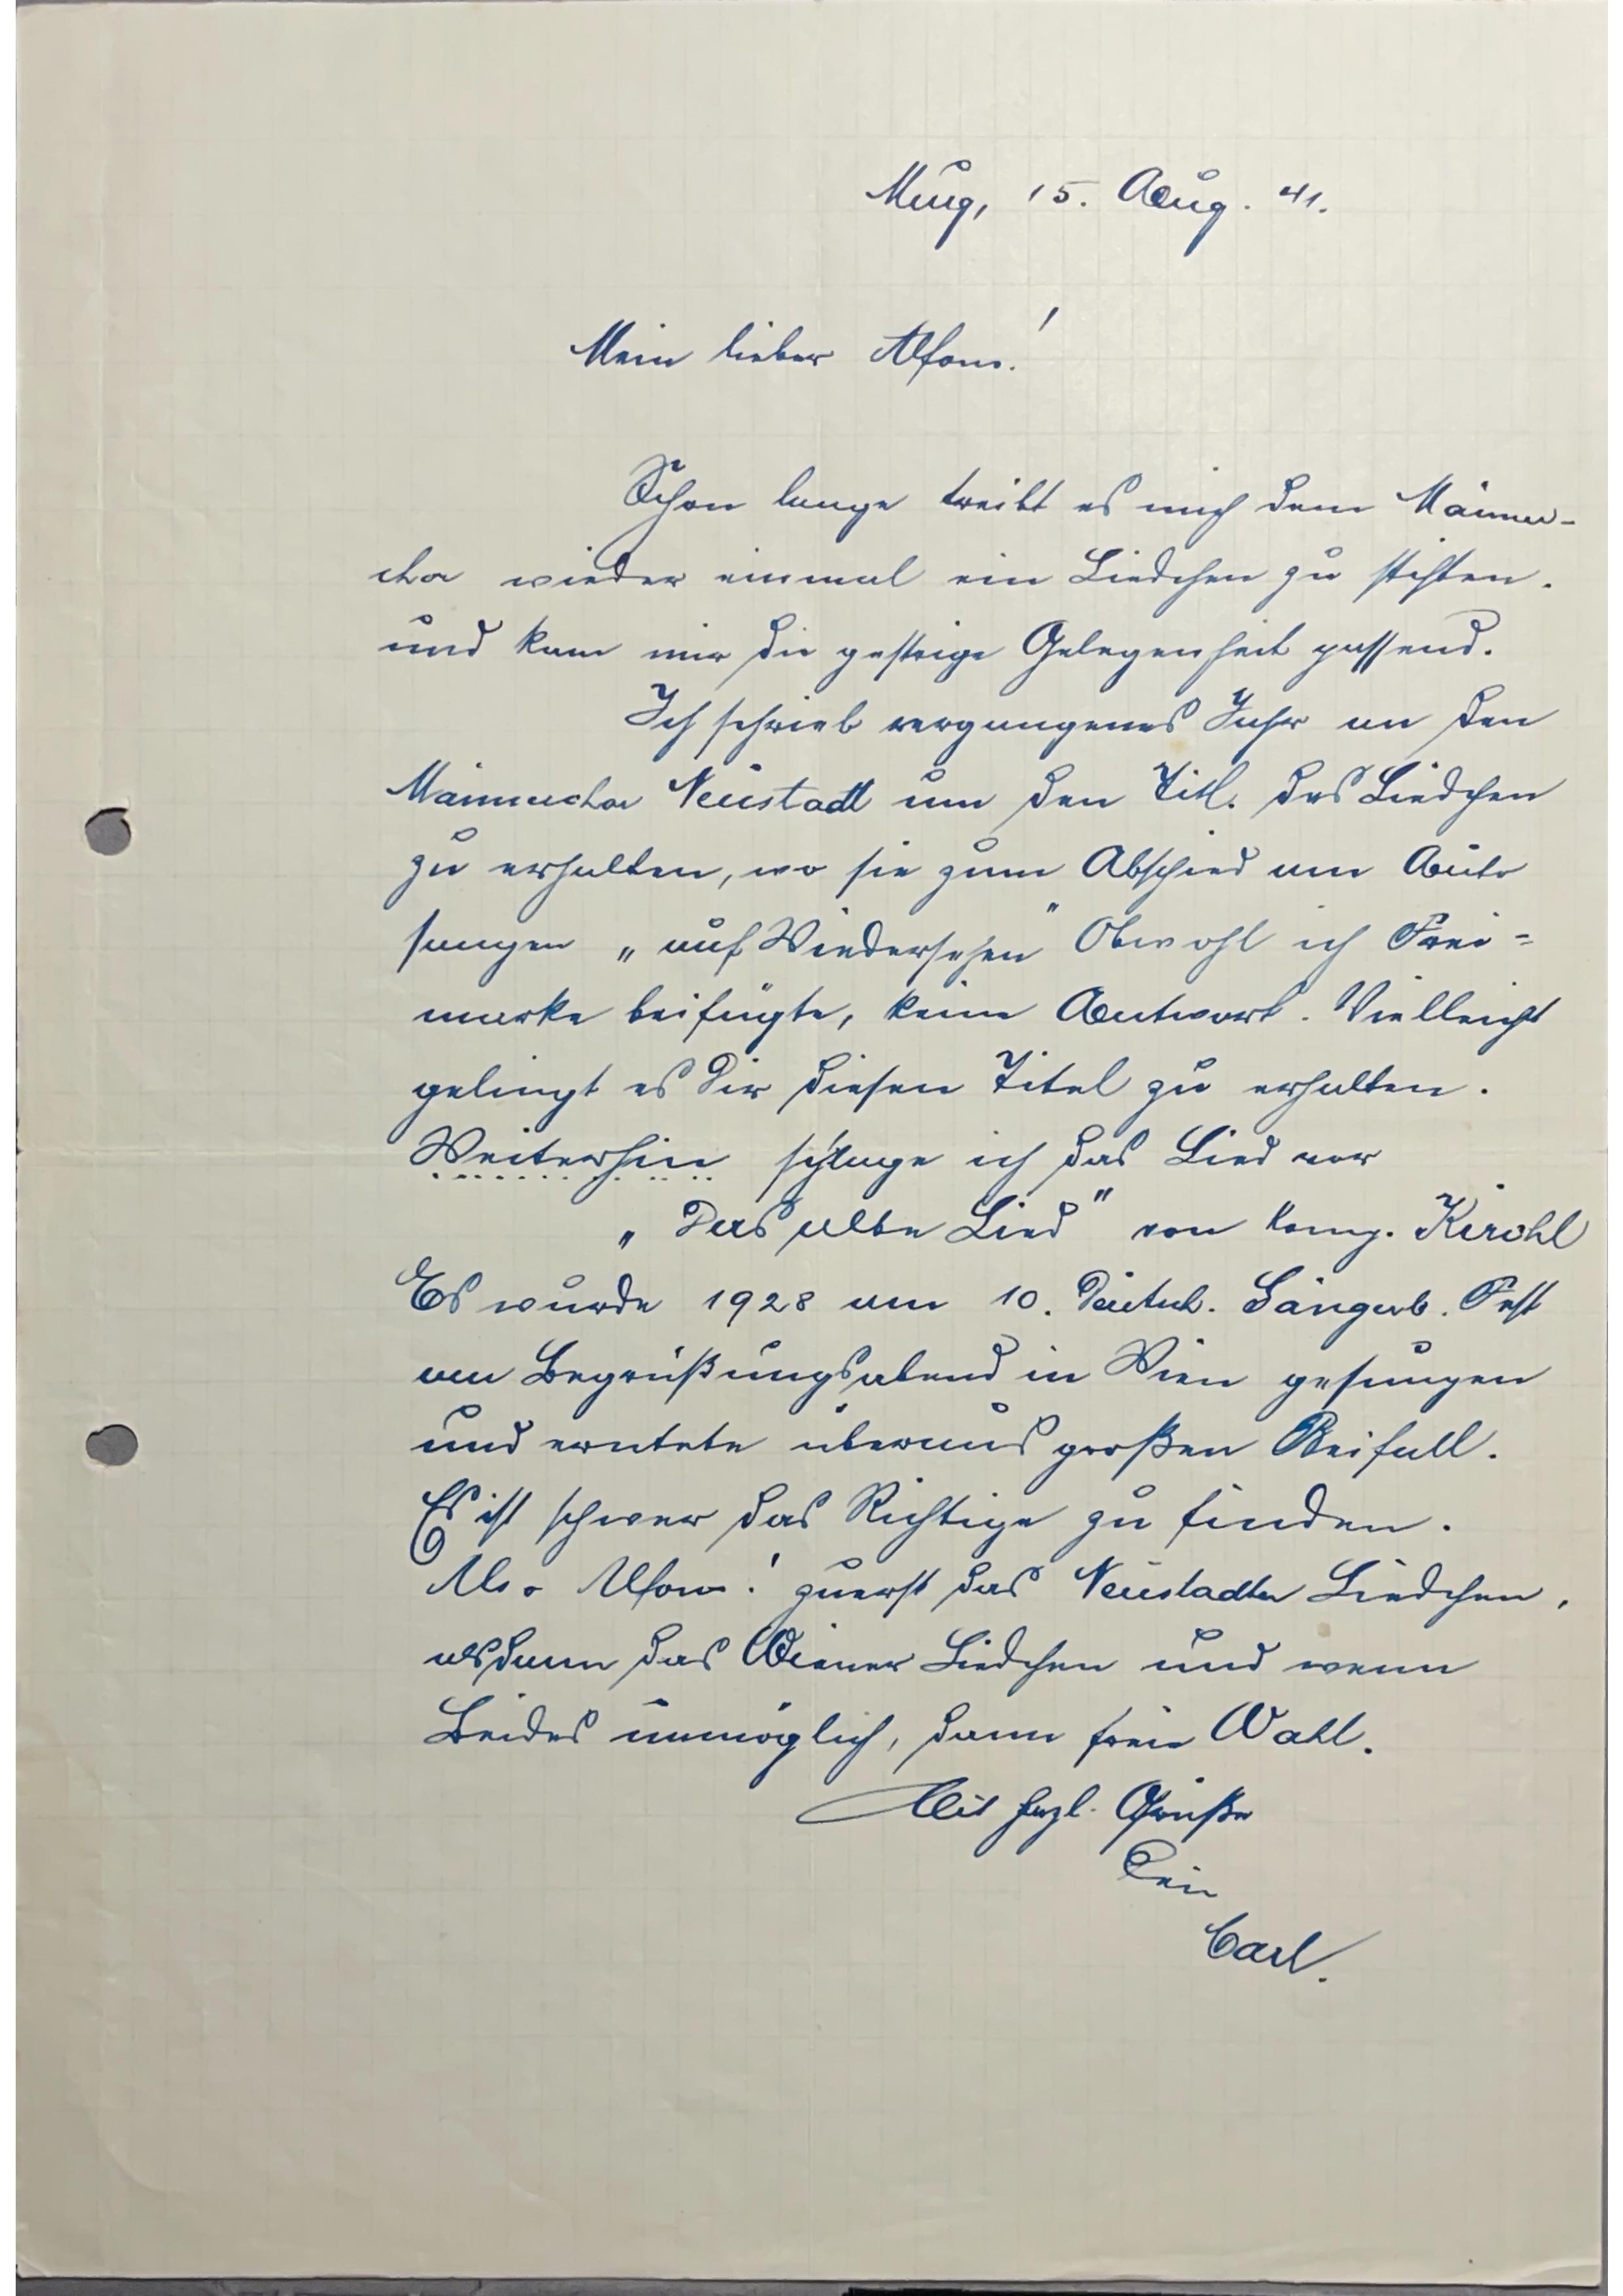 Murg, 15. Aug. 41.
Mein lieber Alfons!
Schon lange treibt es mich dem Männer-
chor wieder einmal ein Liedchen zu stiften.
und kam mir die gestrige Gelegenheit passend.
Ich schrieb vergangenes Jahr an den
Männerchor Neustadt um den Titl. des Liedchen
zu erhalten, wo sie zum Abschied am Auto
sungen „auf Wiedersehen" Obwohl ich Frei=
marke beifügte, keine Antwort. Vielleicht
gelingt es Dir diesen Titel zu erhalten.
Weiterhin schlage ich das Lied vor
„Das alte Lied" von Komp. Kirchl
Es wurde 1928 am 10. Deutsch. Sängerb. Fest
am Begrüßungsabend in Wien gesungen
und erntete überaus großen Beifall.
Es ist schwer das Richtige zu finden.
Also Alfons! zuerst das Neustadter Liedchen,
alsdann das Wiener Liedchen und wenn
Beides unmöglich, dann freie Wahl.
Mit herzl. Grüße
Dein
Carl.